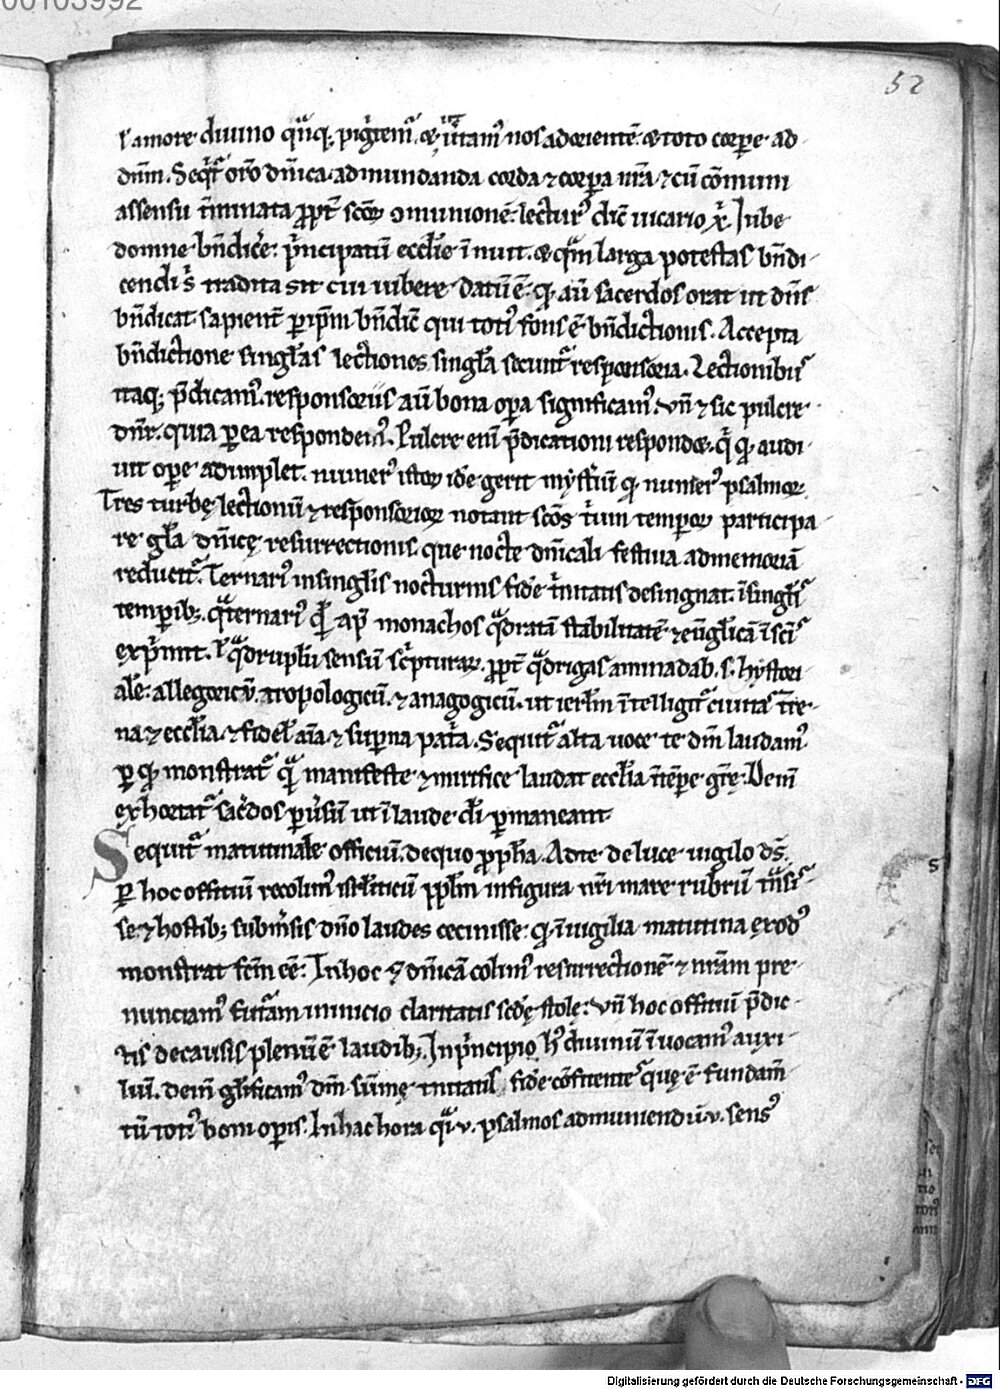 00103992
52
l amore diuino q̄nq; pigͥtem᷑ & uͥtam᷒ nos ad orientē & toto corpe ad
dn̄m. Seqͥt᷑ or̄o dn̄ica. ad mundanda corda ⁊ corpa nr̄a ⁊ cū cōmuni
assensu t̾minata ꝓpt̾ scōꝝ ɔmunionē. lectur᷒ dic̄ uicario x̄. Iube
domne bn̄dic̾e: pͥncipatū eccl̄ie īnuit. & qͣm larga potestas bn̄di
cendi s̾ tradita sit cui iubere datū ē. qͦ au᷑ sacerdos orat ut dn̄s
bn̄dicat. sapient̾ ꝑ ip̄m bn̄dic̄ qui toti᷒ fons ē bn̄dictionis. Accepta
bn̄dictione singl̾as lectiones singl̾a secunt᷑ responsoria. Lectionib᷒
itaq; p̄dicam᷒. responsoriis au᷑ bona opa significam᷒. vn̄ ⁊ sic pulcre
dn̄r. quia ꝑ ea respondem᷒. Pulcre eni᷑ p̄dicationi respond&. qͥ qͦ audi
uit ope adimplet. numer᷒ istoꝝ idē gerit mysͭiū qͦ numer᷒ psalmoꝝ
Tres turbę lectionū ⁊ responsorioꝝ notant scōs tͥum tempoꝝ participa
re gl̄a dn̄icę resurrectionis. que nocte dn̄icali festiua ad memoriā
reducit᷑. Ternari᷒ in singl̾is nocturnis fidē tͥnitatis desingnat. ī singl̾is
tempib;. qͣternari᷒ qͥ ap̄ monachos qͣdratā stabilitatē ⁊ eūgl̾icā ī scīs
exp̾mit. l̾ qͣdruplicē sensū sc̾pturaꝝ. ꝓpt̾ qͣdrigas aminadab. s. hystori
alē: allegoricū. tropologicū. ⁊ anagogicū. ut ierl̄m ītelligit᷑ ciuitas t̾re
na ⁊ eccl̄ia. ⁊ fidel̾ aīa ⁊ supna pat̾a. Sequit᷑ alta uoce te dm̄ laudam᷒
ꝑ qͦ monstrat᷑ qͣ manifeste ⁊ mirifice laudat eccl̄ia ī tēpe gr̄ę. Dein̄
exhortat᷑ sac̾dos p uersū ut ī laude dī pmaneant.
Sequit᷑ matutinale officiū. de quo ꝓph̄a. Ad te de luce uigilo d̄s.
ꝑ hoc offitiū recolim᷒ isrl̾iticū ppl̄m in figura nr̄i mare rubrū tͣnsi
se. ⁊ hostib; subm̾sis dn̄o laudes cecinisse. qͦ ī uigilia matutina exod᷒
monstrat fc̄m cē. In hoc ⁊ dn̄icā colim᷒ resurrectionē ⁊ nr̄am pre
nunciam᷒ futͣam in inicio claritatis scd̄ę stolę. vn̄ hoc offitiū p̄dic
tis de causis plenū ē laudib;. In pͥncipio h᷒ diuinū īuocam᷒ auxi
liū. dein̄ gl̾ificam᷒ dm̄ sūmę tͥnitatis fidē cōfitentes quę ē fundam̄
tū toti᷒ boni opis. In hac hora qͣi v. psalmos ad muniendū v. sens᷒
Digitalisierung gefördert durch die Deutsche Forschungsgemeinschaft - DFG